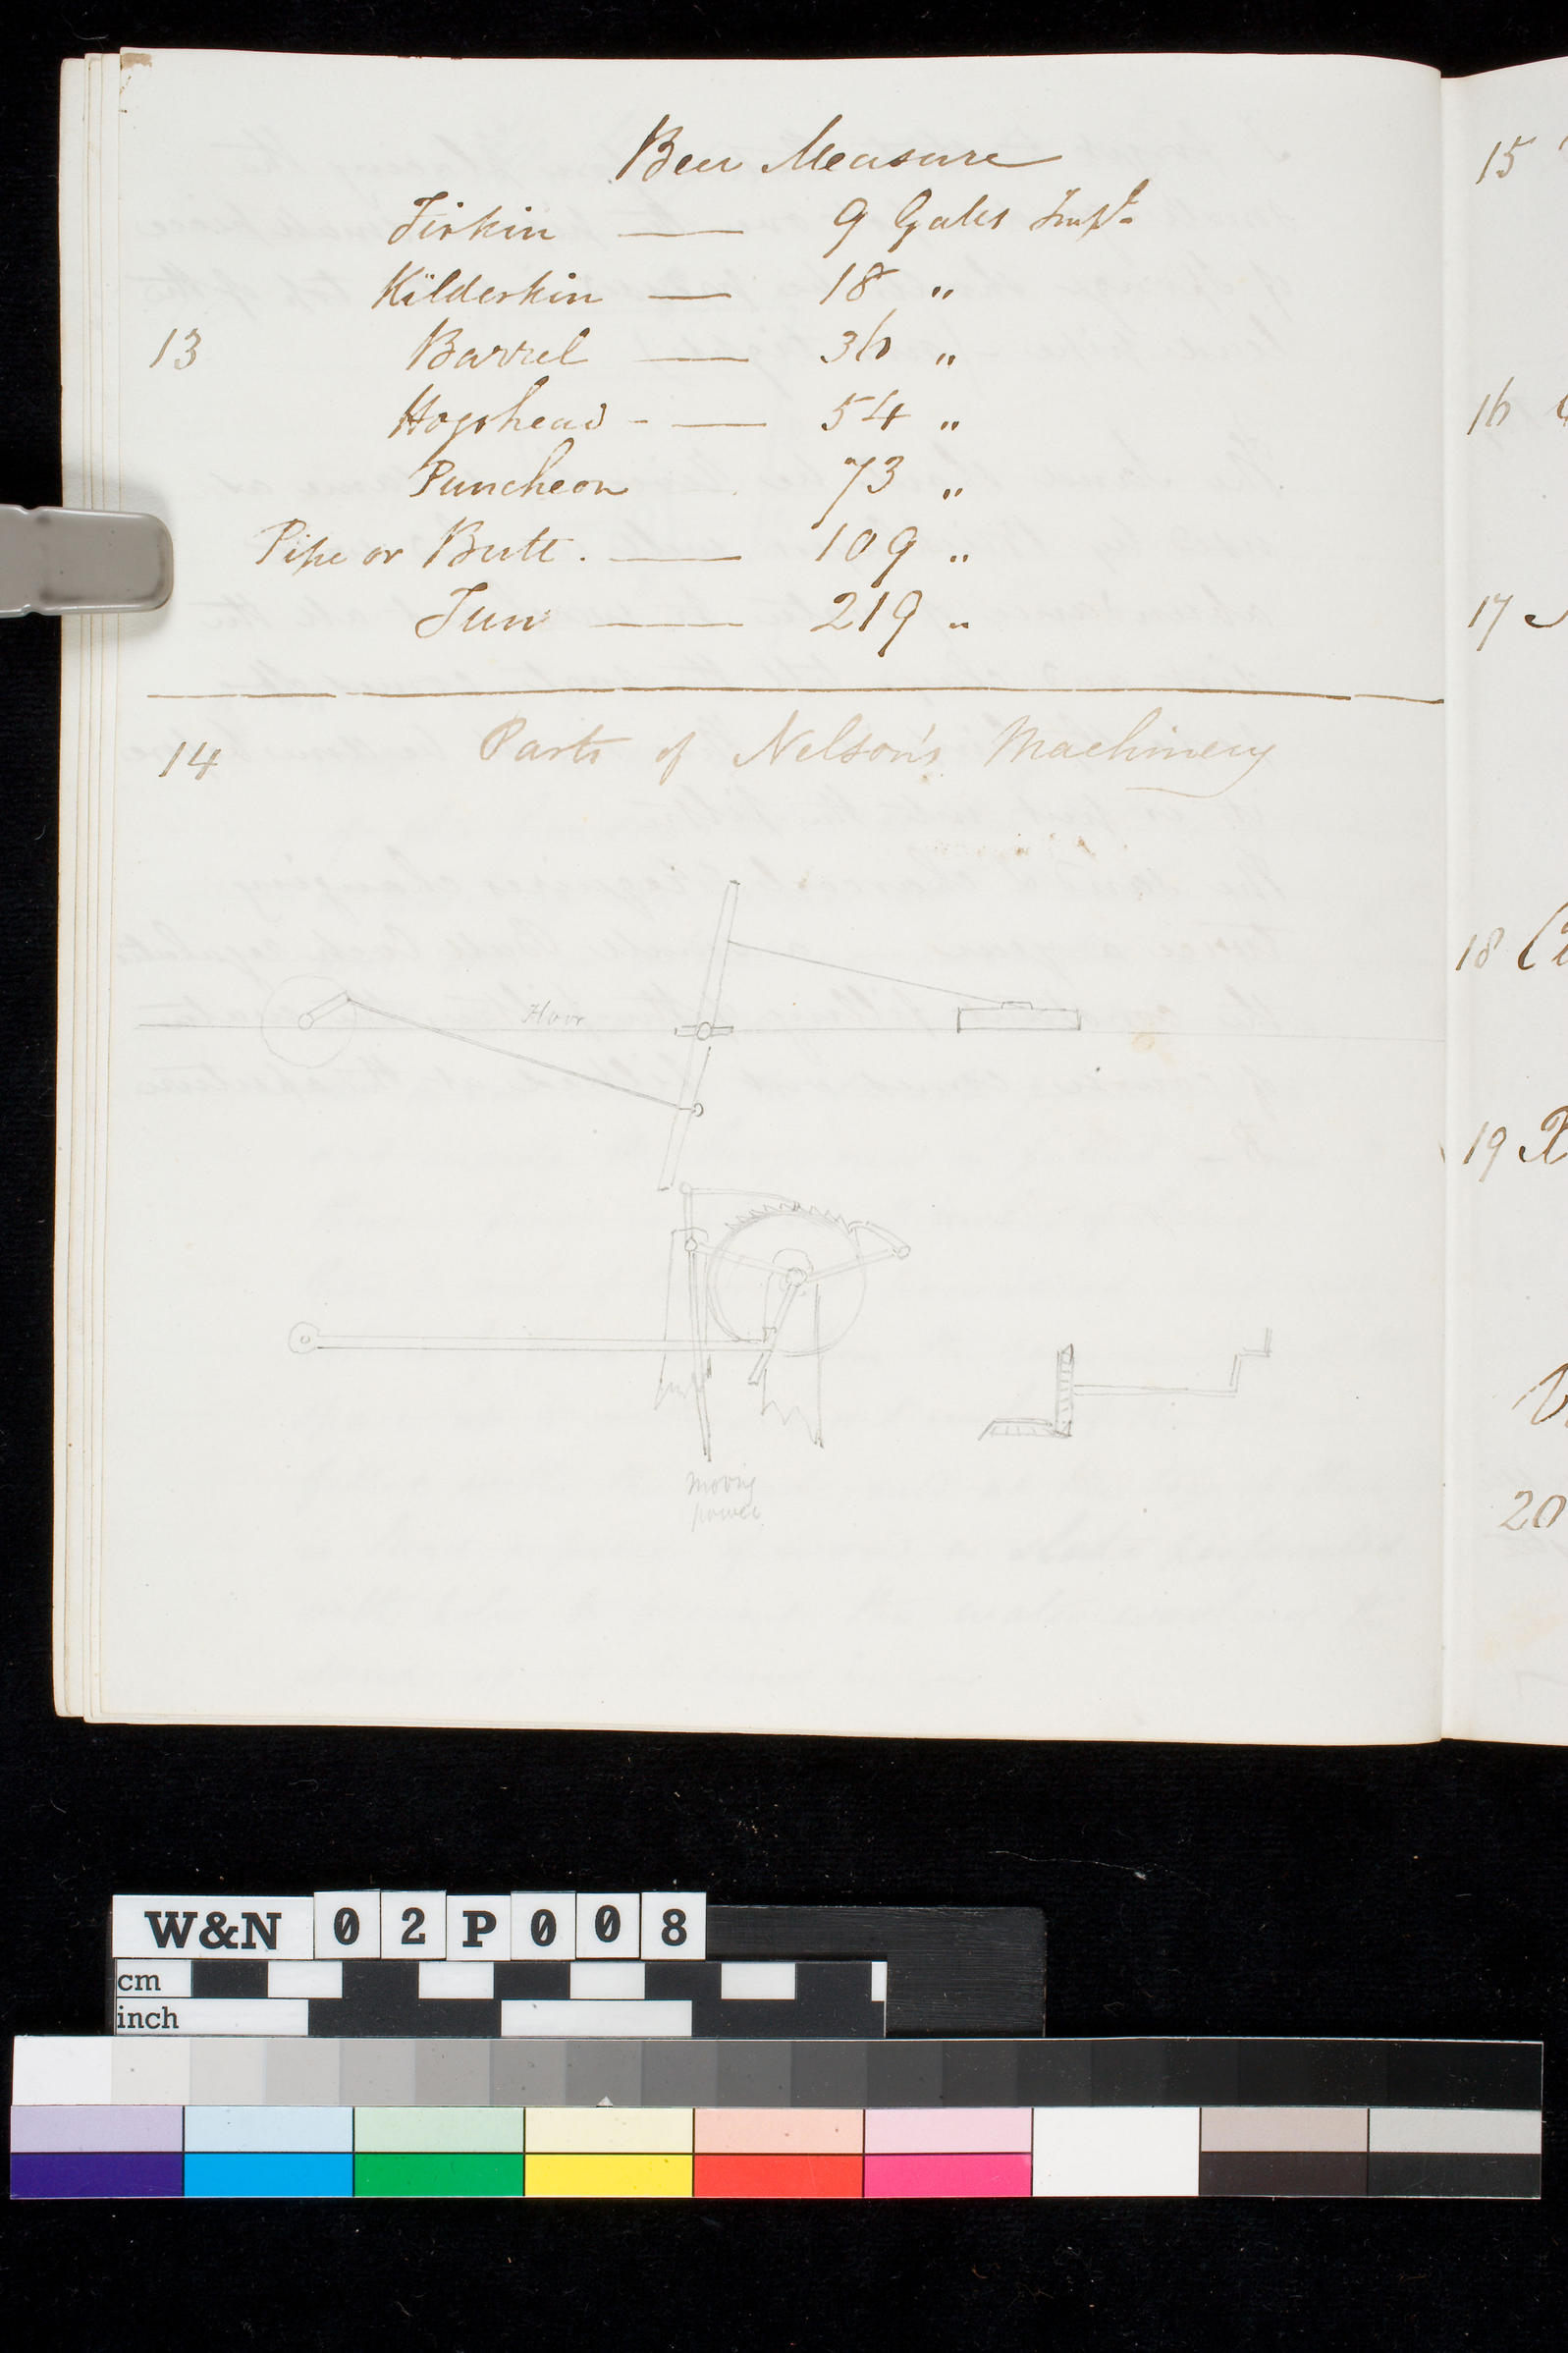 Beer Measure
Firkin — 9 Galls Impl.
Kilderkin — 18 "
13 Barrel — 36 "
Hogshead - — 54 "
Puncheon 73 "
Pipe or Butt. — 109 "
Tun — 219 "
14 Parts of Nelson's Machinery
Floor
moving
power
15
16
17
18
19
20
W&N 02P008
cm
inch